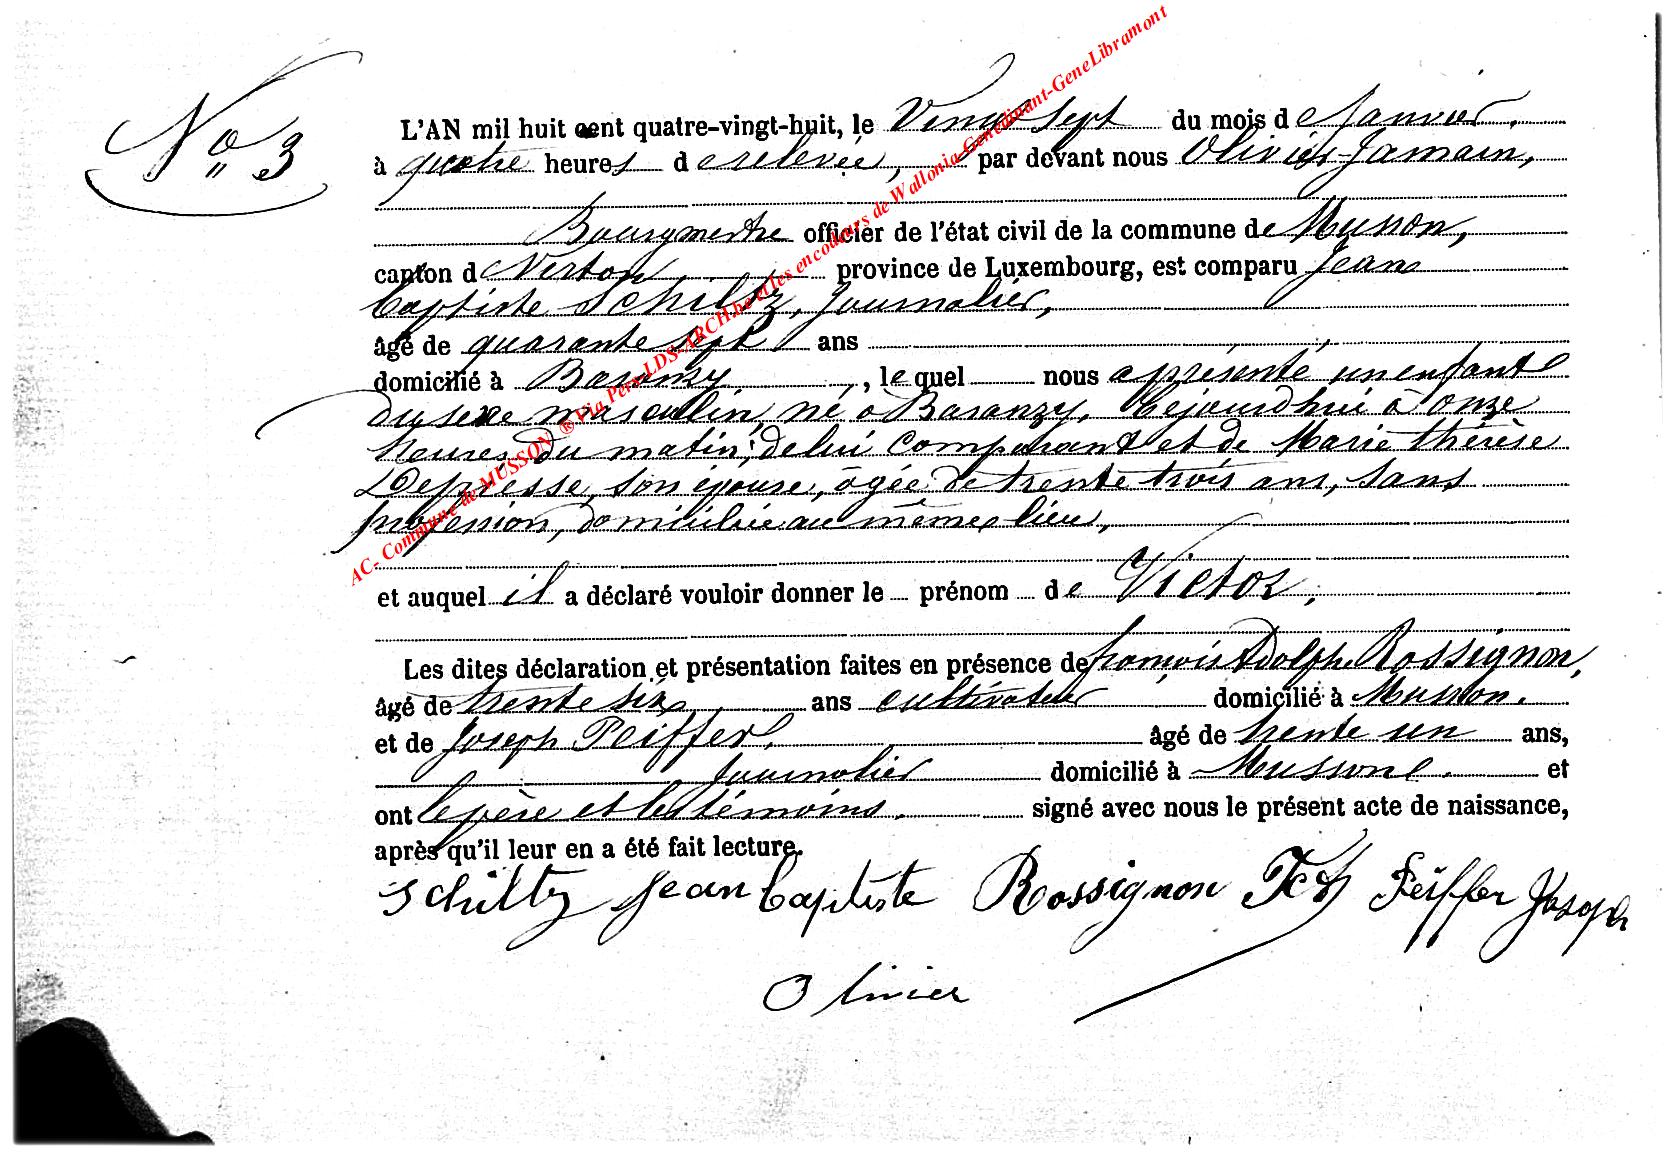 N° 3
L'AN mil huit cent quatre-vingt-huit, le Vingt sept du mois de Janvier.
à quatre heures de relevée, par devant nous Olivier Jamain,
Bourgmestre officier de l'état civil de la commune de Musson,
canton de Virton, province de Luxembourg, est comparu Jean
baptiste Schiltz, Journalier,
âgé de quarante sept ans
domicilié à Baranzy, , lequel nous a présenté un enfant
du sexe masculin, né à Baranzy, Cejourdhui à onze
heures du matin, de lui Comparant et de Marie thérèse
son épouse, âgée de trente trois ans, sans
profession, domiciliée au même lieu,
et auquel il a déclaré vouloir donner le prénom de Victor,
Les dites déclaration et présentation faites en présence de françois Adolphe Rossignon,
âgé de trente six ans cultivateur domicilié à Musson.
et de Joseph Peiffer, âgé de trente un ans,
Journalier domicilié à Musson. et
ont le père et les témoins. signé avec nous le présent acte de naissance,
après qu'il leur en a été fait lecture.
Schiltz Jean baptiste Rossignon Peiffer Joseph
Olivier
AC- Commune de MUSSON ® Via Pers-LDS-ARCH.be et les encodeurs de Wallonia-Genedinant-GeneLibramont